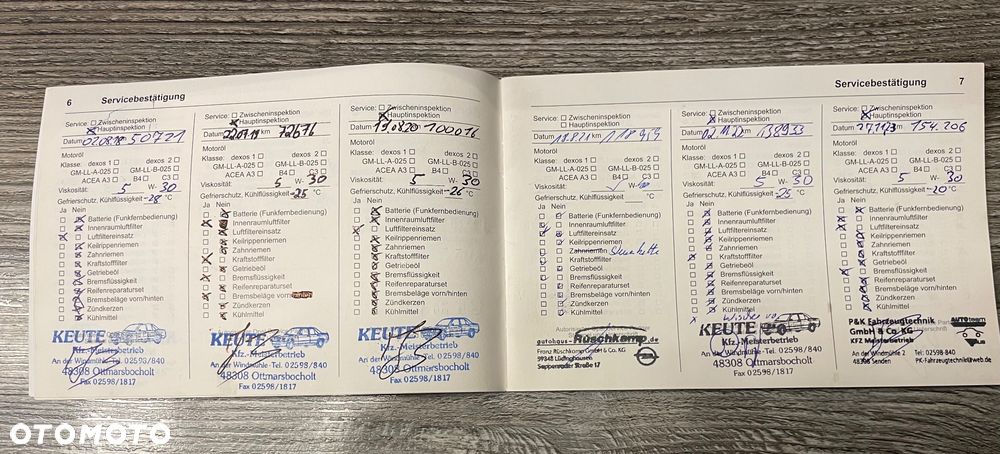 6 Servicebestätigung
Service: Zwischeninspektion
Hauptinspektion
Datum 02.08.18 50721
Motoröl
Klasse: dexos 1 dexos 2
GM-LL-A-025 GM-LL-B-025
ACEA A3 B4 C3
Viskosität: 5 W- 30
Gefrierschutz, Kühlflüssigkeit -28 °C
Ja Nein
Batterie (Funkfernbedienung)
Innenraumluftfilter
Luftfiltereinsatz
Keilrippenriemen
Zahnriemen
Kraftstofffilter
Getriebeöl
Bremsflüssigkeit
Reifenreparaturset
Bremsbeläge vorn/hinten
Zündkerzen
Kühlmittel
KEUTE
Kfz.-Meisterbetrieb
An der Windmühle · Tel. 02598/840
48308 Ottmarsbocholt
Fax 02598/1817
Service: Zwischeninspektion
Hauptinspektion
Datum 22.07.19 km 72676
Motoröl
Klasse: dexos 1 dexos 2
GM-LL-A-025 GM-LL-B-025
ACEA A3 B4 C3
Viskosität: 5 W- 30
Gefrierschutz, Kühlflüssigkeit -25 °C
Ja Nein
Batterie (Funkfernbedienung)
Innenraumluftfilter
Luftfiltereinsatz
Keilrippenriemen
Zahnriemen
Kraftstofffilter
Getriebeöl
Bremsflüssigkeit
Reifenreparaturset
Bremsbeläge vorn/hinten
Zündkerzen
Kühlmittel
KEUTE
Kfz.-Meisterbetrieb
An der Windmühle · Tel. 02598/840
48308 Ottmarsbocholt
Fax 02598/1817
Service: Zwischeninspektion
Hauptinspektion
Datum 19.08.20 100016
Motoröl
Klasse: dexos 1 dexos 2
GM-LL-A-025 GM-LL-B-025
ACEA A3 B4 C3
Viskosität: 5 W- 30
Gefrierschutz, Kühlflüssigkeit -26 °C
Ja Nein
Batterie (Funkfernbedienung)
Innenraumluftfilter
Luftfiltereinsatz
Keilrippenriemen
Zahnriemen
Kraftstofffilter
Getriebeöl
Bremsflüssigkeit
Reifenreparaturset
Bremsbeläge vorn/hinten
Zündkerzen
Kühlmittel
KEUTE
Kfz.-Meisterbetrieb
An der Windmühle · Tel. 02598/840
48308 Ottmarsbocholt
Fax 02598/1817
Servicebestätigung 7
Service: Zwischeninspektion
Hauptinspektion
Datum km
Motoröl
Klasse: dexos 1 dexos 2
GM-LL-A-025 GM-LL-B-025
ACEA A3 B4 C3
Viskosität: W-
Gefrierschutz, Kühlflüssigkeit °C
Ja Nein
Batterie (Funkfernbedienung)
Innenraumluftfilter
Luftfiltereinsatz
Keilrippenriemen
Zahnriemen
Kraftstofffilter
Getriebeöl
Bremsflüssigkeit
Reifenreparaturset
Bremsbeläge vorn/hinten
Zündkerzen
Kühlmittel
autohaus-Rüschkamp.de
Franz Rüschkamp GmbH & Co. KG
59348 Lüdinghausen
Seppenrader Straße 17
Service: Zwischeninspektion
Hauptinspektion
Datum km 138933
Motoröl
Klasse: dexos 1 dexos 2
GM-LL-A-025 GM-LL-B-025
ACEA A3 B4 C3
Viskosität: 5 W- 30
Gefrierschutz, Kühlflüssigkeit -25 °C
Ja Nein
Batterie (Funkfernbedienung)
Innenraumluftfilter
Luftfiltereinsatz
Keilrippenriemen
Zahnriemen
Kraftstofffilter
Getriebeöl
Bremsflüssigkeit
Reifenreparaturset
Bremsbeläge vorn/hinten
Zündkerzen
Kühlmittel
KEUTE
Kfz.-Meisterbetrieb
An der Windmühle · Tel. 02598/840
48308 Ottmarsbocholt
Fax 02598/1817
Service: Zwischeninspektion
Hauptinspektion
Datum 27.11.23 154.206
Motoröl
Klasse: dexos 1 dexos 2
GM-LL-A-025 GM-LL-B-025
ACEA A3 B4 C3
Viskosität: 5 W- 30
Gefrierschutz, Kühlflüssigkeit -20 °C
Ja Nein
Batterie (Funkfernbedienung)
Innenraumluftfilter
Luftfiltereinsatz
Keilrippenriemen
Zahnriemen
Kraftstofffilter
Getriebeöl
Bremsflüssigkeit
Reifenreparaturset
Bremsbeläge vorn/hinten
Zündkerzen
Kühlmittel
P&K Fahrzeugtechnik
GmbH & Co. KG
KFZ Meisterbetrieb
An der Windmühle 2 Tel: 02598 840
48308 Senden PK-Fahrzeugtechnik@web.de
AUTO team
OTOMOTO